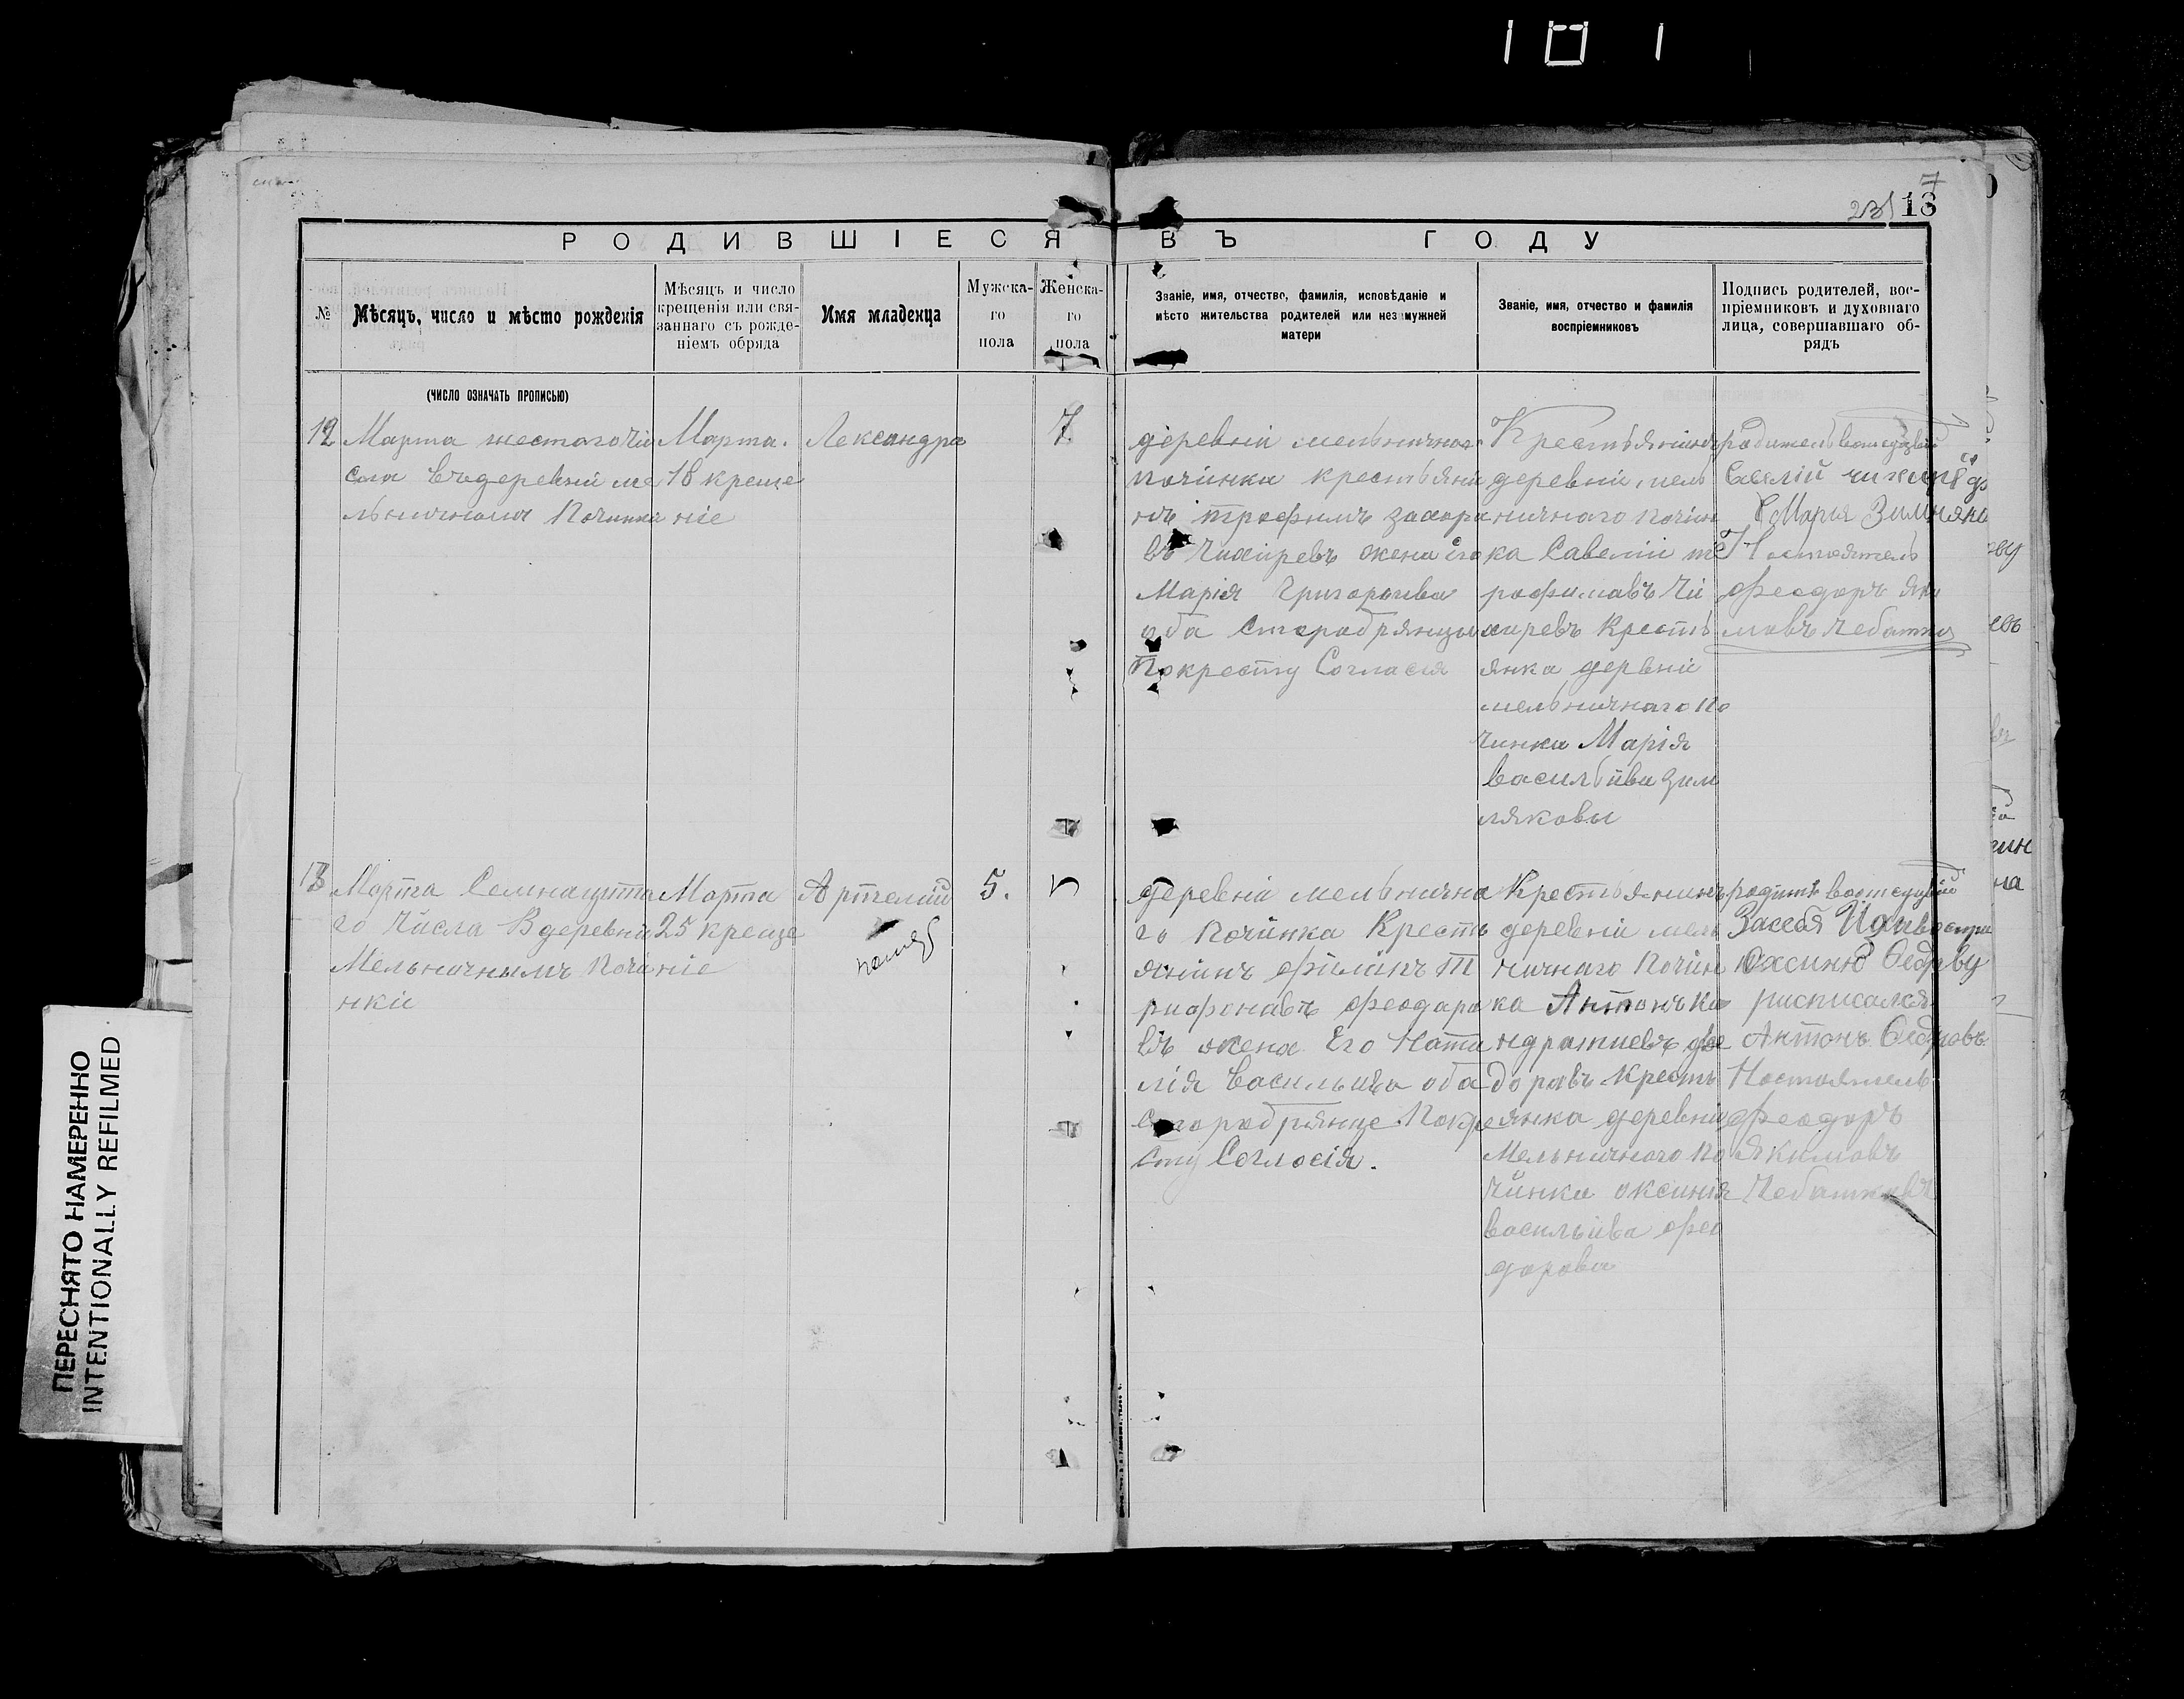 7
231 13
РОДИВШІЕСЯ ВЪ ГОДУ
№
Мѣсяцъ, число и мѣсто рожденія
Мѣсяцъ и число
крещенія или свя-
заннаго съ рожде-
ніемъ обряда
Имя младенца
Мужска-
го
пола
Женска-
го
пола
Званіе, имя, отчество, фамилія, исповѣданіе и
мѣсто жительства родителей или незамужней
матери
Званіе, имя, отчество и фамилія
воспріемниковъ
Подпись родителей, вос-
пріемниковъ и духовнаго
лица, совершавшаго об-
рядъ
(ЧИСЛО ОЗНАЧАТЬ ПРОПИСЬЮ)
12
Марта шестого чи
сла въ деревніи ме
льничномъ Починка
Марта.
18 креще
ніе
Лександра
7
деревніи мельничног
починка крестьяни
нъ трофимъ захара
въ Чихиревъ жена его
Марія Григорьива
оба старобрянцы
По кресту Согласія
Крестьянинъ
деревніи мель
ничнаго почин
ка Савеліи т
рофимавъ Чи
хиревъ Кресть
янка дервніи
мельничнаго по
чинка Марія
васильива Зим
няковы
родитель
Марья Зимняко
Настоятель
феодоръ Яки
мовъ Чебатко
13
Марта Семнацата
го Числа В деревни
Мельничнымъ Почи
нкіе
Марта
25 креще
ніе
Артемій
5.
деревніи мельнична
го Починка Кресть
янинъ филипъ Т
рифонавъ феодара
въ жена Его Ната
лія Васильива оба
Старобрянце Покре
сту Согласія.
Крестьянинъ
деревніи мель
ничнаго Почин
ка Антонъ Ко
ндратиевъ фе
доравъ Кресть
янка деревніи
Мельничного по
чинка оксиния
васильива фео
дорова
За себя
Оксиню Федрву
расписался
Антонъ Федровъ
Настоятель
феодоръ
Якимовъ
Чебатковъ
ПЕРЕСНЯТО НАМЕРЕННО
INTENTIONALLY REFILMED